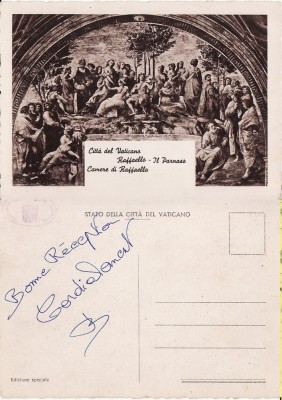 Città del Vaticano
Raffaello - Il Parnaso
Camere di Raffaello
STATO DELLA CITTÀ DEL VATICANO
Bonne Réception
Cordialement
Edizione speciale